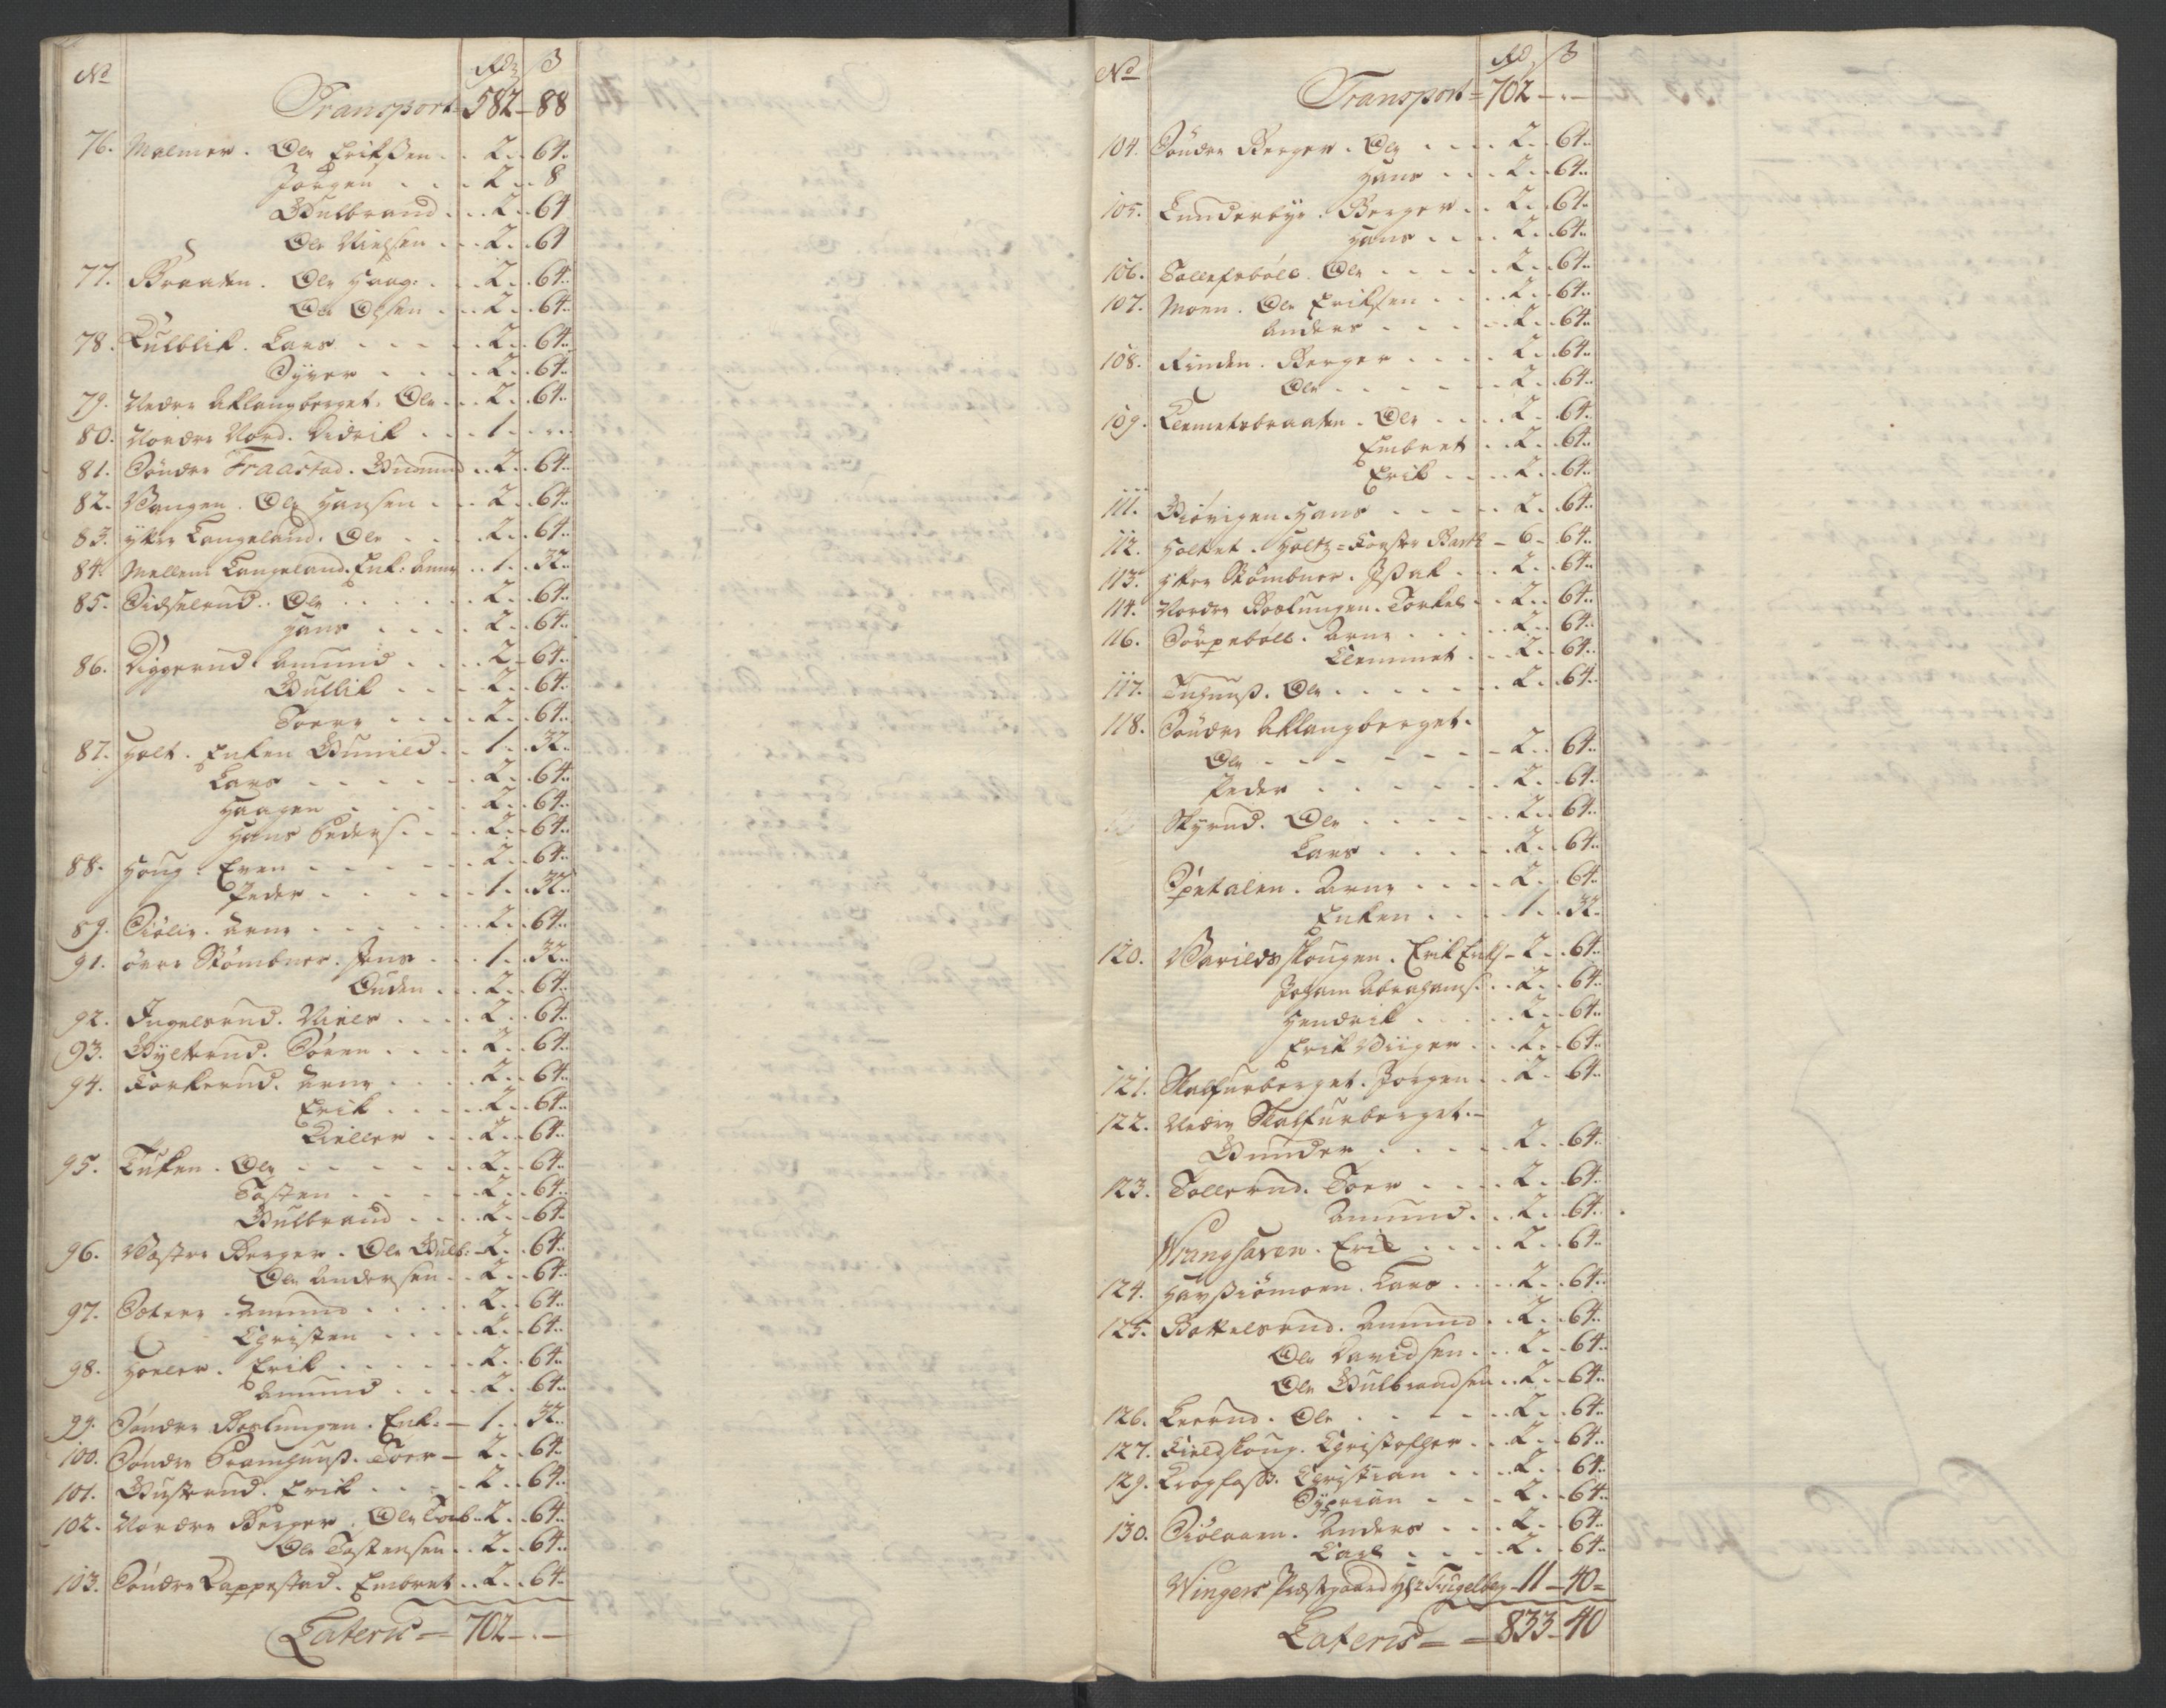 No Rd ß
Transport 582 - 88
76. Malmer. Ole Erikßen . . 2 . . 64 . .
Jörgen . . . 2 . . 8
Gulbrand . . . 2 . . 64
Ole Nielsen . . . 2 . . 64
77. Braaten. Ole Haag: . . . 2 . . 64 . .
Ole Olsen . . . 2 . . 64 . .
78. Kulblik. Lars . . . . 2 . . 64 . .
Syver . . . . 2 . . 64 . .
79. Nedre Aklangberget. Ole . . . 2 . . 64 . .
80. Nordre Nord. Didrik . . . 1 . . . .
81. Söndre Fraastad. Gumund . . 2 . . 64 . .
82. Vangen. Ole Hansen . . . 2 . . 64 . .
83. ytre Langeland. Ole . . . 2 . . 64 . .
84. Mellem Langeland. Enk: Anne . . 1 . . 32 . .
85. Sidselrud. Ole . . . . 2 . . 64 . .
Hans . . . . 2 . . 64 . .
86. Diggerud. Amund . . . 2 - 64 . .
Gullik . . . 2 . . 64 . .
Torer . . . . 2 . . 64 . .
87. Holt. Enken Gunild . . 1 . . 32 . .
Lars . . . . 2 . . 64 . .
Haagen . . . . 2 . . 64 . .
Hans Peders. . . . 2 . . 64 . .
88. Houg. Even . . . . 2 . . 64 . .
Peder . . . . 1 . . 32 . .
89. Siölie. Arne . . . . 2 . . 64 . .
91. övre Strömbner. Jens . . . 1 . . 32 . .
Ouden . . . 2 . . 64 . .
92. Ingelsrud. Niels . . . . 2 . . 64 . .
93. Gylterud. Sören . . . . 2 . . 64 . .
94. Forkerud. Arne . . . . 2 . . 64 . .
Erik . . . . 2 . . 64 . .
Kieller . . . 2 . . 64 . .
95. Tuken. Ole . . . . . 2 . . 64 . .
Tosten . . . . 2 . . 64 . .
Gulbrand . . . 2 . . 64 . .
96. Vestre Berger. Ole Gulb: - 2 . . 64 . .
Ole Andersen . . 2 . . 64 . .
97. Sætere. Amund . . . . 2 . . 64 . .
Christen . . . . 2 . . 64 . .
98. Hoeler. Erik . . . . 2 . . 64 . .
Amund . . . . 2 . . 64 . .
99. Söndre Roslungen. Enk: - 1 . . 32 . .
100. Söndre Tramhuuß. Toer - 2 . . 64 . .
101. Gusterud. Erik . . . . 2 . . 64 . .
102. Nordre Berger. Ole Torb. . 2 . . 64 . .
Ole Tostensen . . 2 . . 64 . .
103. Söndre Dappestad. Embret . . 2 . . 64 . .
Lateris = 702 - . -
No Rd ß
Transport = 702 - . -
104. Söndre Berger. Ole . . . . 2 . . 64 . .
Hans . . . 2 . . 64 . .
105. Lunderbye. Berger . . 2 . . 64 . .
Hans . . . . 2 . . 64 . .
106. Tollefsböll. Ole . . . . 2 . . 64 . .
107. Moen. Ole Eriksen . . . . 2 . . 64 . .
Anders . . . . 2 . . 64 . .
108. Rinden. Berger . . . . 2 . . 64 . .
Ole . . . . . 2 . . 64 . .
109. Klemetsbraaten. Ole . . . 2 . . 64 . .
Embret . . 2 . . 64 . .
Erik . . . . 2 . . 64 . .
111. Giövigen. Hans . . . . 2 . . 64 . .
112. Holtet. Holtz = Forster Barth - 6 - 64 . .
113. ytre Strömbner. Ißak . . . 2 . . 64 . .
114. Nordre Roslungen. Torkel . . 2 . . 64 . .
116. Törpeböll. Arne . . . . 2 . . 64 . .
Klemmet . . . 2 . . 64 . .
117. Tuhuuß. Ole . . . . . 2 . . 64 . .
118. Söndre Aklangberget.
Ole . . . . . . 2 . . 64 . .
Peder . . . . . 2 . . 64 . .
Skyrud. Ole . . . . . 2 . . 64 . .
Lars . . . . 2 . . 64 . .
Spetalen. Arne . . . . 2 . . 64 . .
Enken . . . . 1 . . 32 . .
120. Varildskougen. Erik Eriks - 2 . . 64 . .
Johan Abrahams. . . 2 . . 64 . .
Hendrik . . . . 2 . . 64 . .
Erik Viiger . . . 2 . . 64 . .
121. Skalfurberget. Jörgen . . 2 . . 64 . .
122. Nedre Skalfurberget. -
Gunder . . . . 2 . . 64 . .
123. Tollerud. Toer . . . . 2 . . 64 . .
Amund . . . 2 . . 64 . .
Wranghaven. Eric . . . . 2 . . 64 . .
124. Havßiömoen. Lars . . . 2 . . 64 . .
125. Bottelsrud. Amund . . 2 . . 64 . .
Ole Davidsen . . . 2 . . 64 . .
Ole Gulbrandsen . . 2 . . 64 . .
126. Leerud. Ole . . . . . 2 . . 64 . .
127. Kieldskoug. Christopher . . . 2 . . 64 . .
129. Krogfoß. Christian . . . . 2 . . 64 . .
Syprian . . . 2 . . 64 . .
130. Siölaaen. Anders . . . . 2 . . 64 . .
Carl . . . . 2 . . 64 . .
Wingers Præstegaard Hr: Fugelberg - 11 - 40 =
Lateris - - 833 - 40